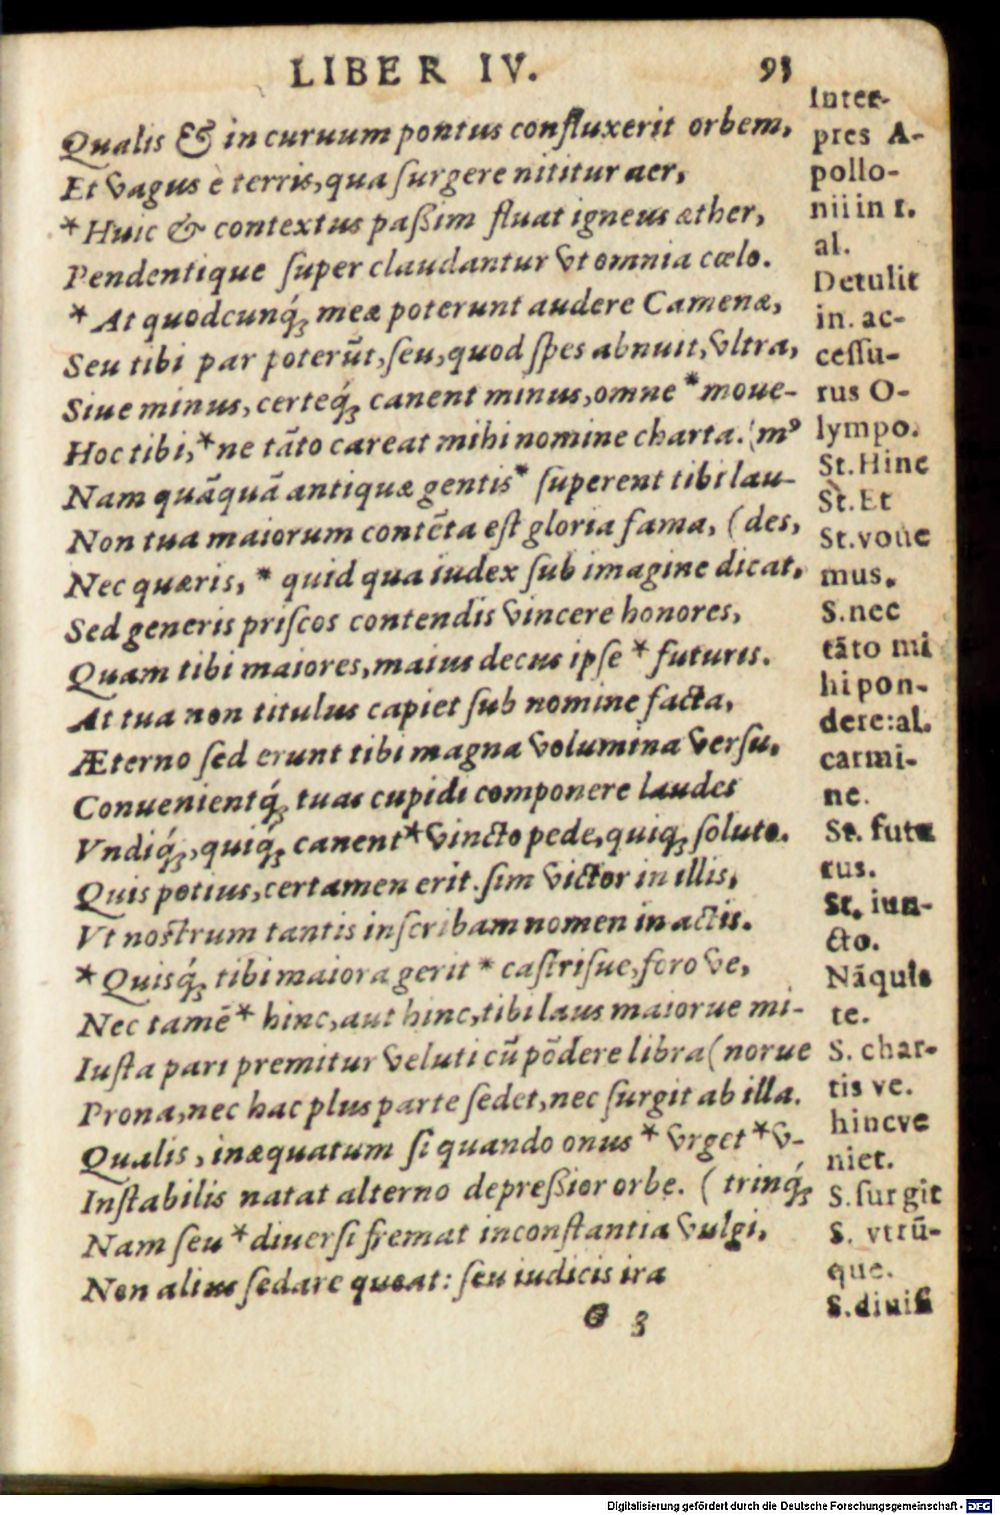 LIBER IV. 95
Qualis & in curuum pontus confluxerit orbem,
Et vagus è terris, qua ſurgere nititur aer,
*Huic & contextus paßim fluat igneus æther,
Pendentique ſuper claudantur vt omnia cœlo.
* At quodcunq́; meæ poterunt audere Camenæ,
Seu tibi par poterũt, ſeu, quod ſpes abnuit, vltra,
Siue minus, certeq́; canent minus, omne *moue-
Hoc tibi, *ne tãto careat mihi nomine charta. (mꝰ
Nam quãquã antiquæ gentis* ſuperent tibi lau-
Non tua maiorum contẽta eſt gloria fama, (des,
Nec quæris, * quid qua iudex ſub imagine dicat,
Sed generis priſcos contendis vincere honores,
Quam tibi maiores, maius decus ipſe *futuris.
At tua non titulus capiet ſub nomine facta,
Æterno ſed erunt tibi magna volumina verſu,
Conuenientq́; tuas cupidi componere laudes
Vndiq́;, quiq́; canent *vincto pede, quiq́; ſoluto.
Quis potius, certamen erit. ſim victor in illis,
Vt noſtrum tantis inſcribam nomen in actis.
*Quisq́; tibi maiora gerit * caſtriſue, foro ve,
Nec tamẽ * hinc, aut hinc, tibi laus maiorue mi-
Iuſta pari premitur veluti cũ põdere libra (norue
Prona, nec hac plus parte ſedet, nec ſurgit ab illa.
Qualis, inæquatum ſi quando onus * vrget *v-
Inſtabilis natat alterno depreßior orbe. ( trinq́;
Nam ſeu *diuerſi fremat inconſtantia vulgi,
Non alius ſedare queat: ſeu iudicis ira
G 3
Inter-
pres A-
pollo-
nii in 1.
al.
Detulit
in. ac-
ceſſu-
rus O-
lympo.
St. Hinc
St. Et
St. voue
mus.
S. nec
tãto mi
hi pon-
dere: al.
carmi-
ne.
St. futu
rus.
St. iun-
cto.
Nãquis
te.
S. char-
tis ve.
hincve
niet.
S. ſurgit
S. vtrũ-
que.
S. diuiſi
Digitalisierung gefördert durch die Deutsche Forschungsgemeinschaft - DFG